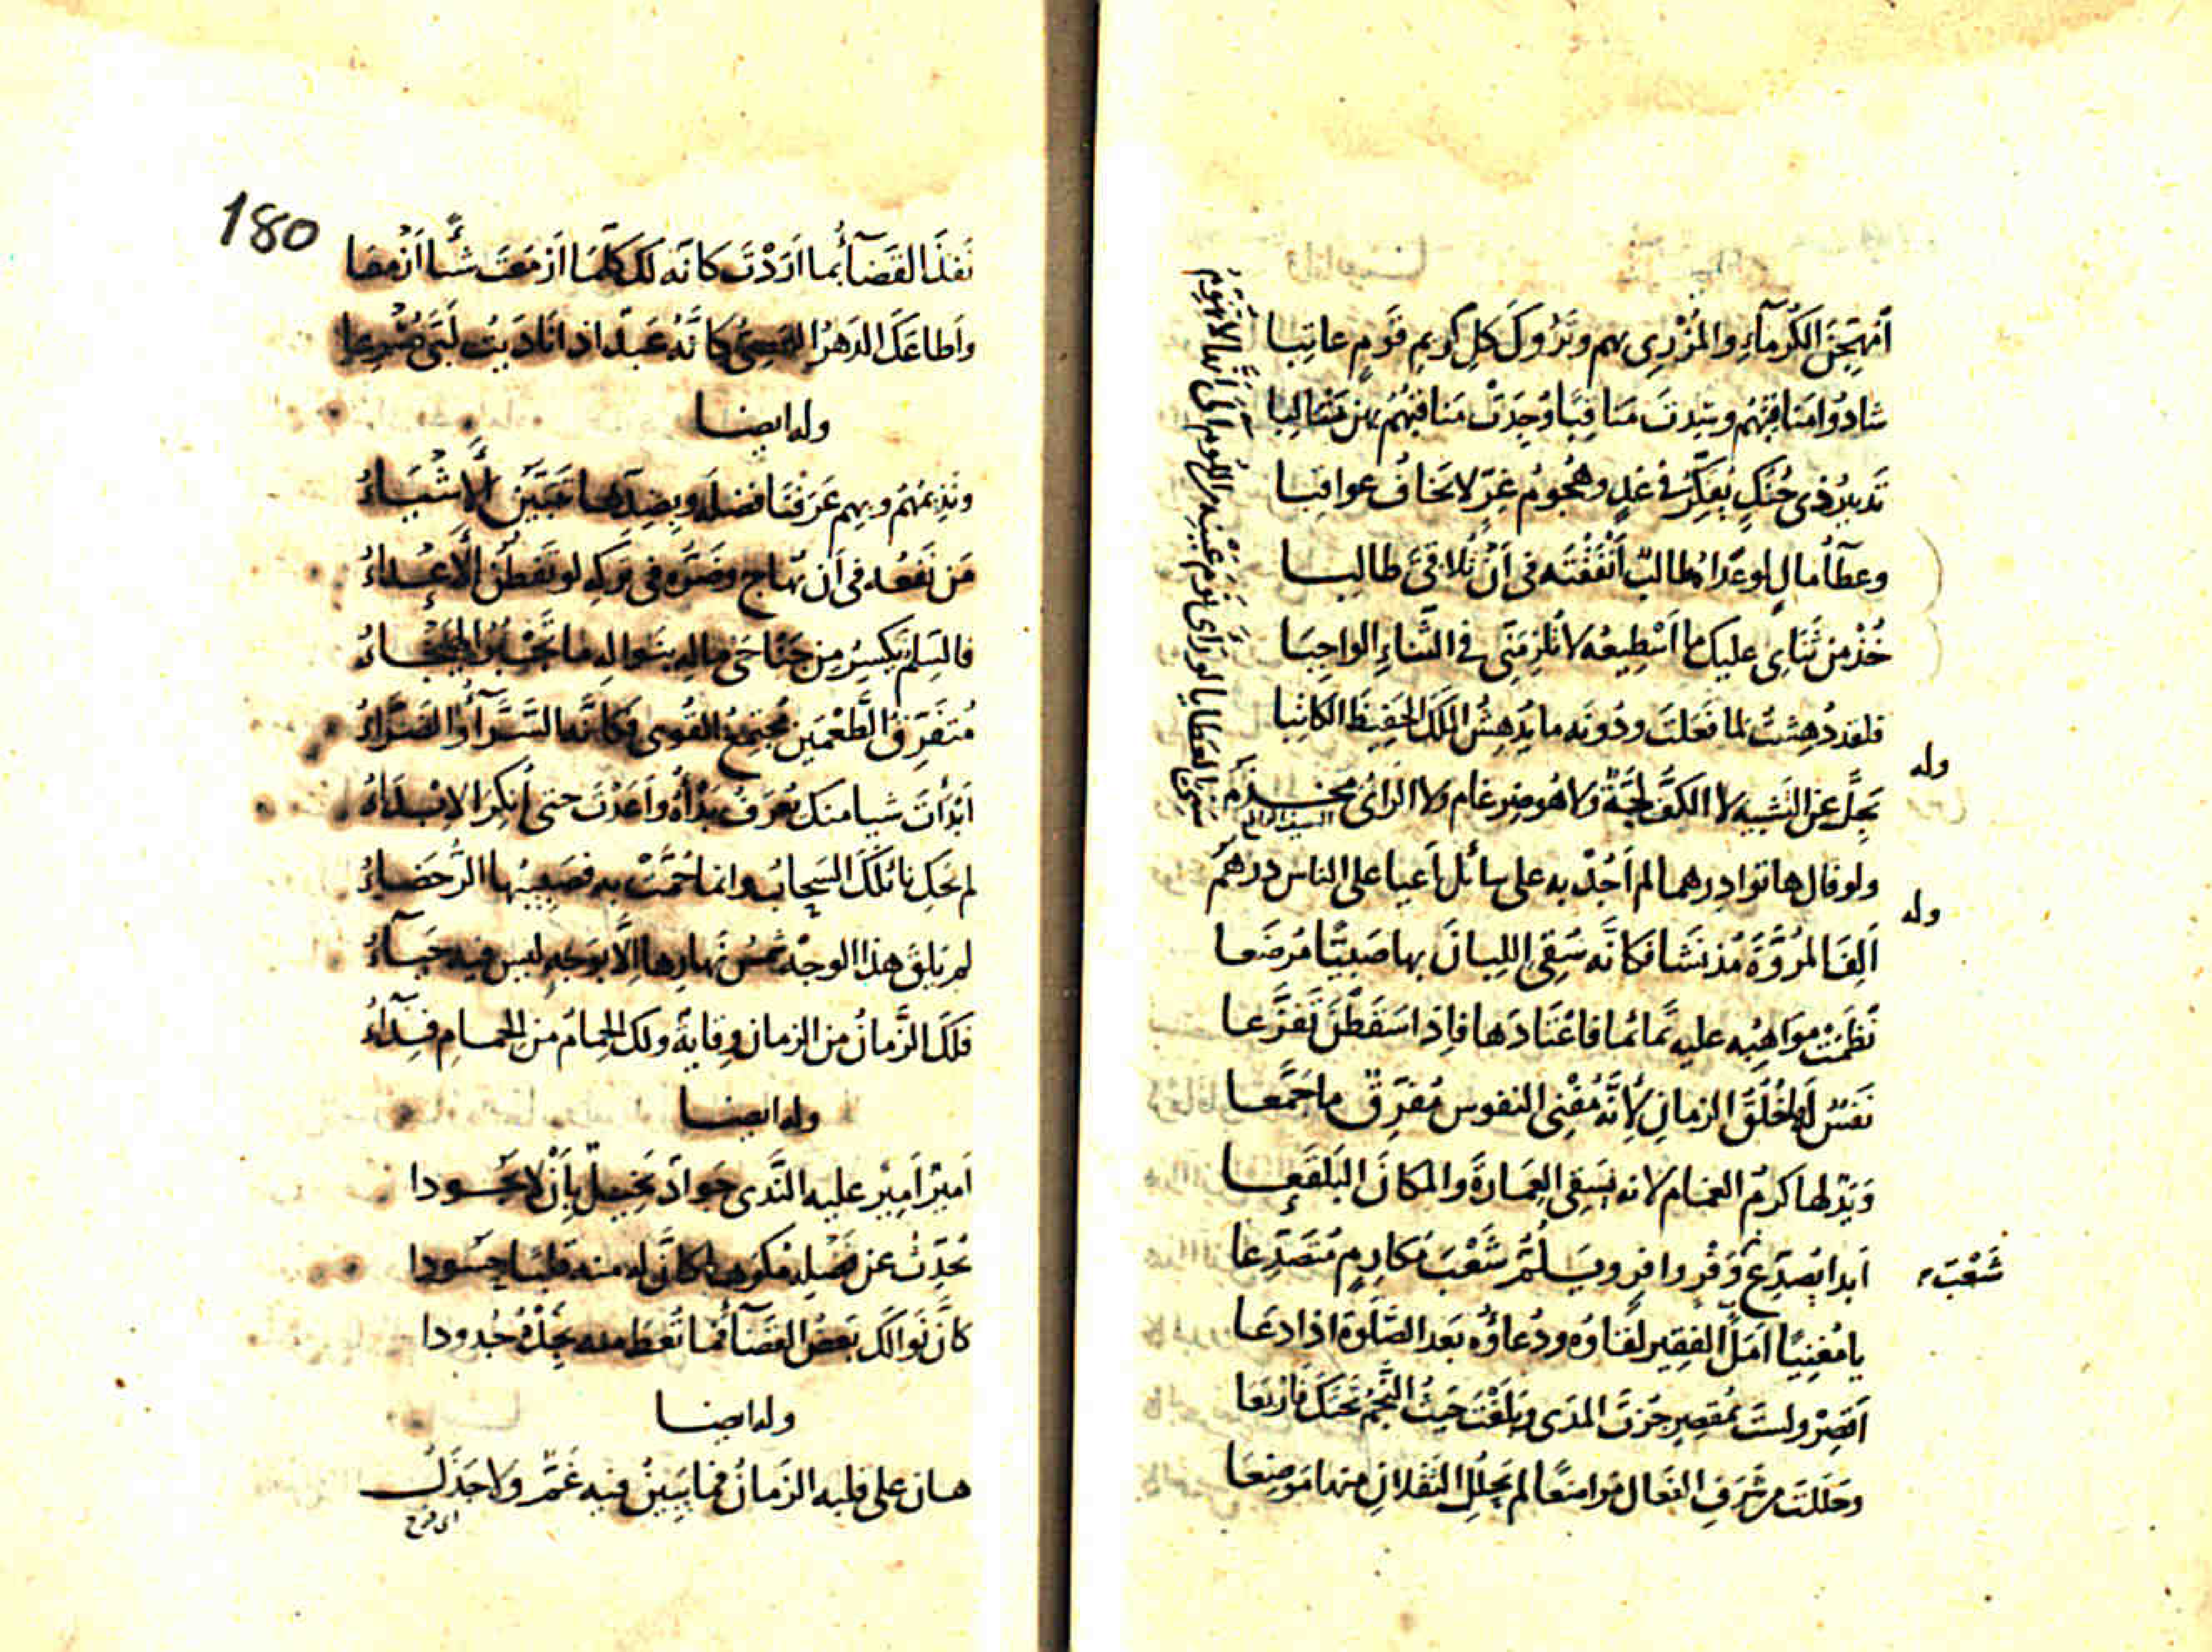 أمهجّن الكرماء والمزري بهم وتروك كل كريم قوم عاتبا
شادوا مناقبهم وشدت مناقبا وجدت مناقبهم بهن مثالبا
تدبير ذي حنك يفكر في غد وهجوم غرّ لا يخاف عواقبا
وعطاء مال لو عداه طالب أنفقته في أن تلاقي طالبا
خذ من ثناي عليك ما أسطيعه لا تلزمني في الثناء الواجبا
فلقد دهشت لما فعلت ودونه ما يدهش الملك الحفيظ الكاتبا
وله
يجل عن التشبيه لا الكف لجة ولا هو ضرغام ولا الرأي مخذم
ولو قال هاتوا درهما لم أجد به على سائل أعيا على الناس درهم
وله
ألف المروّة مذ نشا فكأنه سقي اللبان بها صبيّا مرضعا
نظمت مواهبه عليه تمائما فاعتادها فإذا سقطن تفزعا
نفس لها خلق الزمان لأنه مفني النفوس مفرّق ما جمعا
ويد لها كرم الغمام لانه يسقي العمارة والمكان البلقعا
ابدا يصدّع وفر وافر ويلمّ شعب مكارم متصدعا
شعب
يا مغنيا امل الفقير لقاؤه ودعاؤه بعد الصلوة اذا دعا
أقصر ولست بمقصر جزت المدى وبلغت حيث النجم تحتك فاربعا
وحللت من شرف الفعال مواضعا لم يحلل الثقلان منها موضعا
180
نفذ القضاء بما أردت كانه لك كلما أزمعت شيئا أزمعا
وأطاعك الدهر العصيّ كانه عبد اذا ناديت لبّى مسرعا
وله ايضا
ونذيمهم وبهم عرفنا فضله وبضدها تتبين الأشياء
من نفعه في أن يهاج وضره في تركه لو تفطن الأعداء
فالسلم تكسر من جناحي ماله بنواله ما تجبر الهيجاء
متفرّق الطعمين مجتمع القوى فكانه السراء والضراء
أبدأت شيا منك يعرف بدؤه وأعدت حتى أنكر الابداء
لم تحك نائلك السحاب وانما حمّت به فصبيبها الرحضاء
لم تلق هذا الوجه شمس نهارها إلا بوجه ليس فيه حياء
فلك الزمان من الزمان وقاية ولك الحمام من الحمام فداء
وله ايضا
امير امير عليه الندى جواد بخيل بأن لا يجودا
يحدّث عن فضله مكرها كان له منه قلبا حسودا
كأن نوالك بعض القضاء فما تعط منه نجده جدودا
وله ايضا
هان على قلبه الزمان فما يبين فيه غم ولا جذل
اى فرح